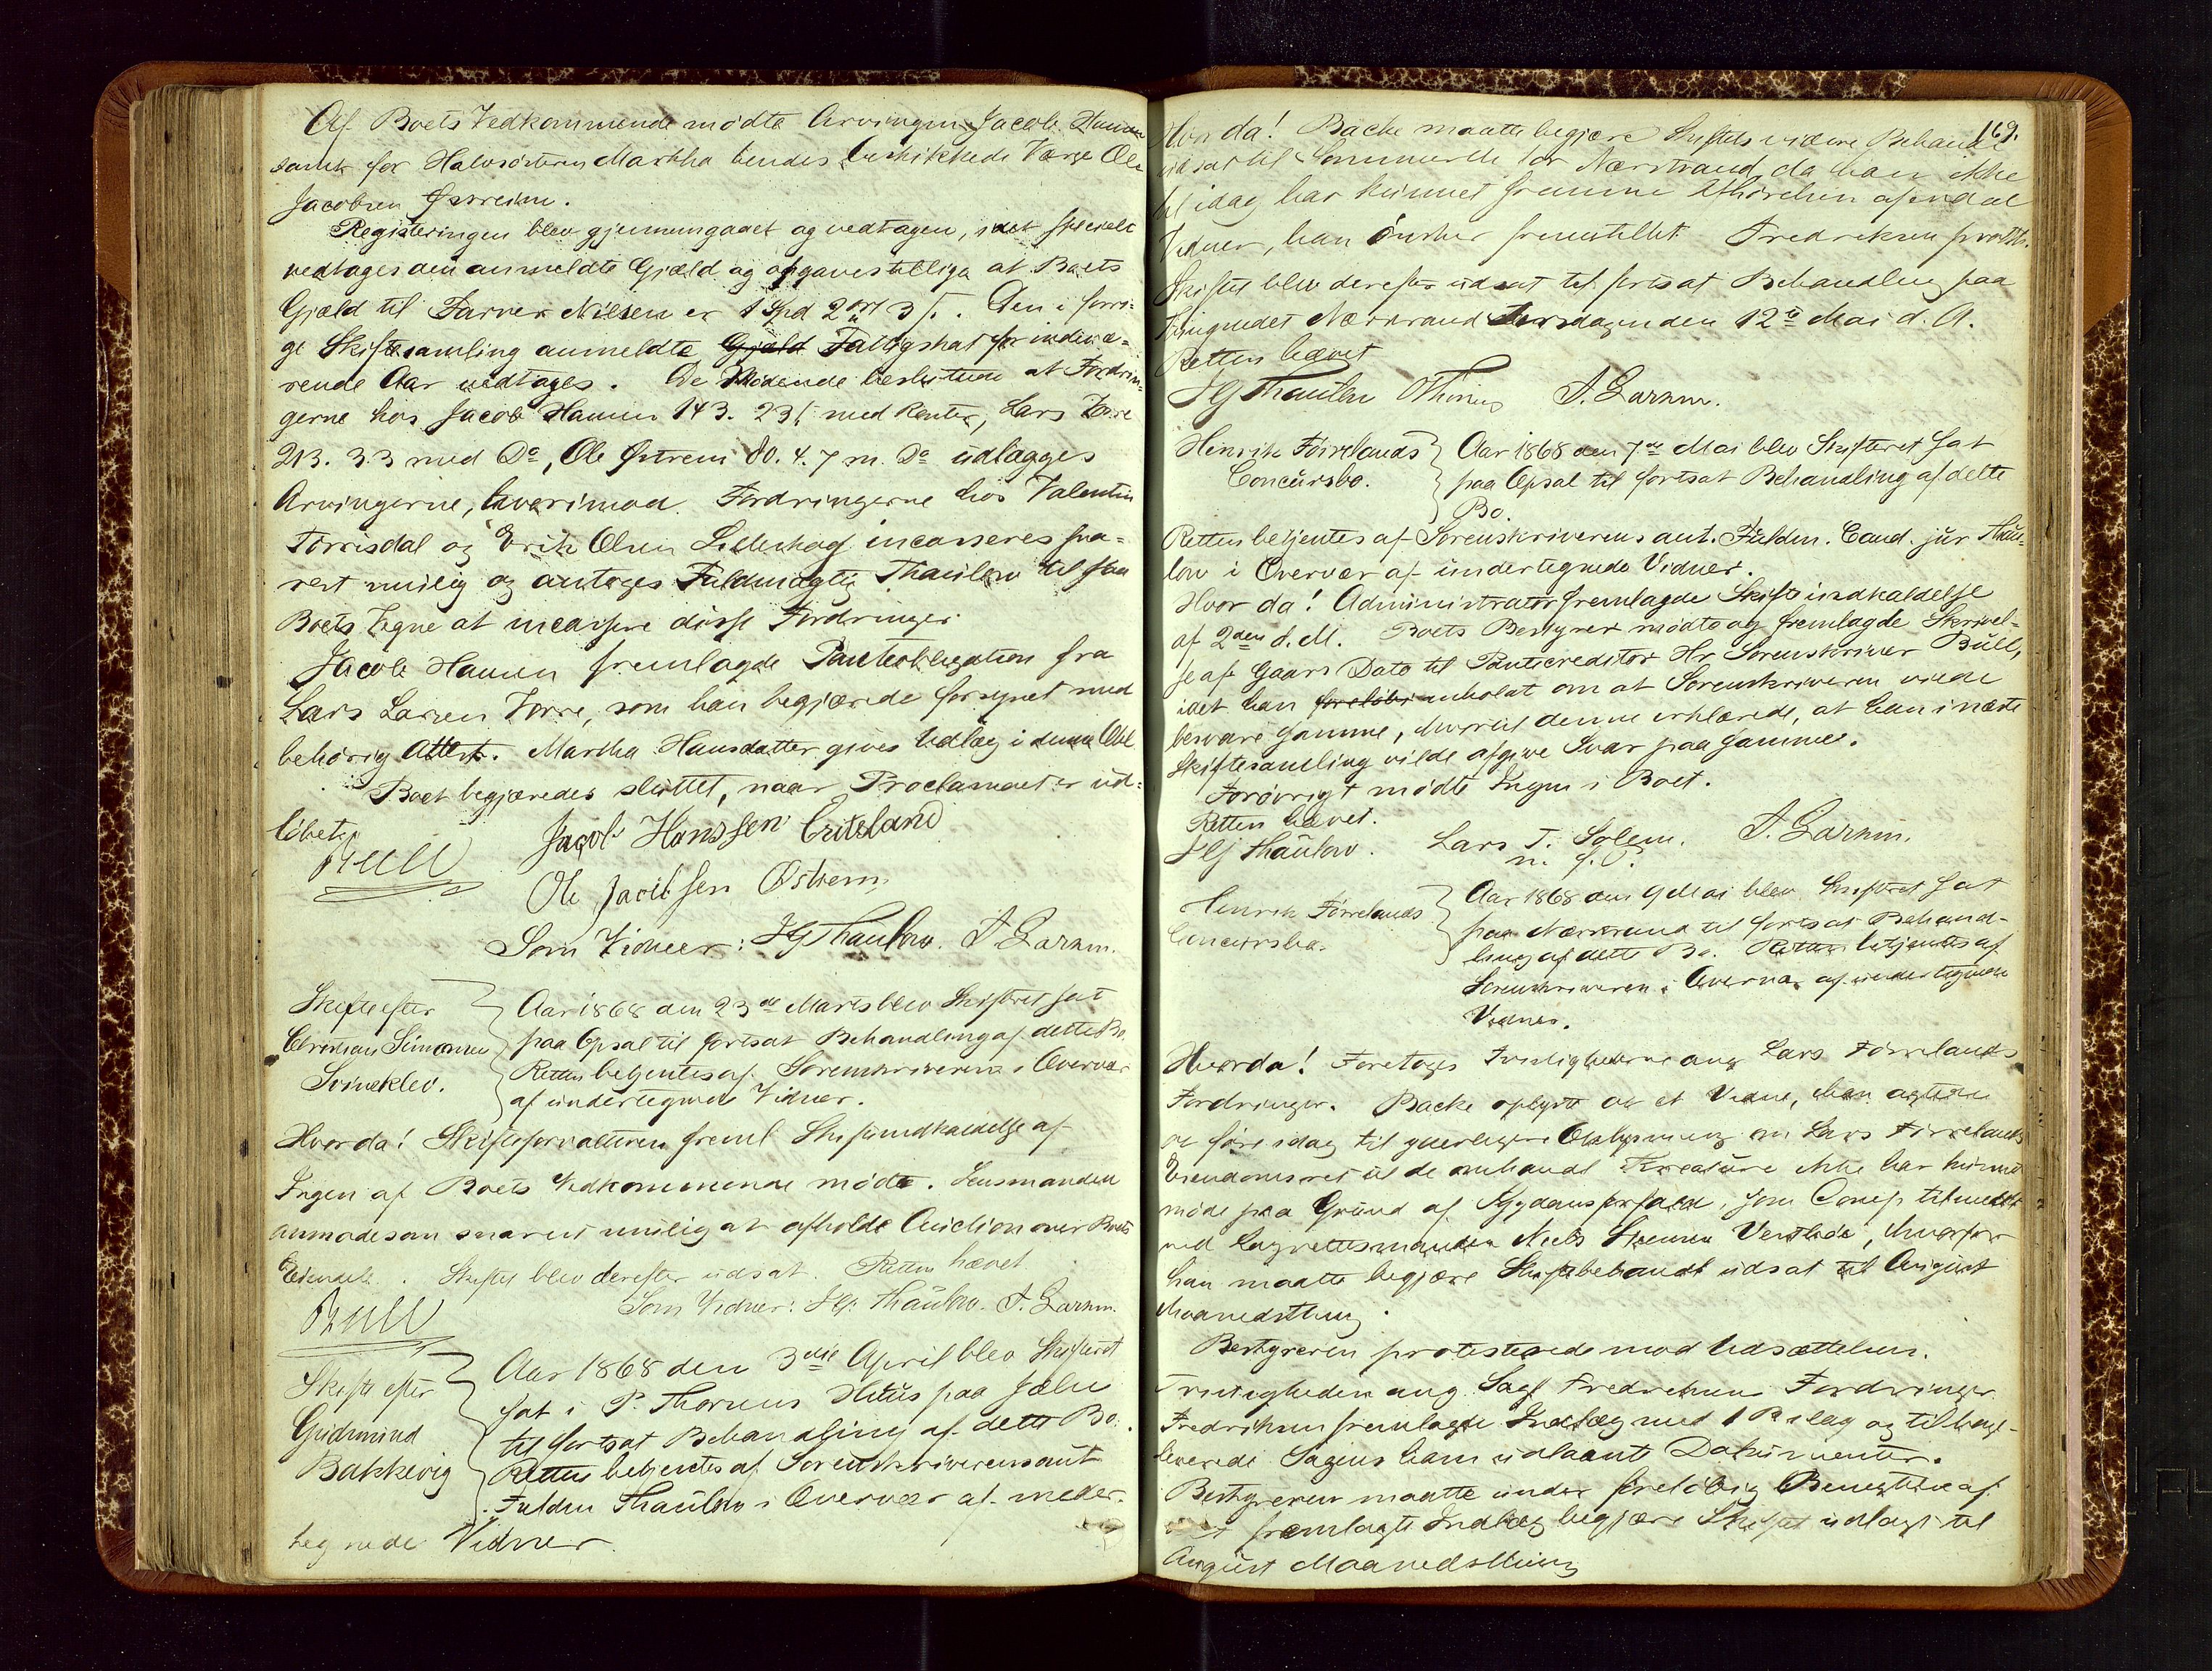 Af Boets Vedkommende mødte Arvingen Jacob Hansen
samt for Halvsøsteren Martha hendes beskikkede Værge Ole
Jacobsen Østreim.
Registeringen blev gjennemgaaet og vedtagen, idet specielt
vedtages den anmeldte Gjæld og opgaves tillige at Boets
Gjæld til Farver Nilsen er 1 Spd 2 ort 3 s. Den i forri-
ge Skiftesamling anmeldte Gjæld Fattigskat for indevæ-
rende Aar vedtages. De Mødende besluttede at Fordrin-
gerne hos Jacob Hansen 143. 23 s med Renter, Lars
213. 3.3 med Do, Ole Østrem 80. 4. 7 m. Do udlægges
Arvingerne, hvorimod Fordringerne hos Valentin
Torrisdal og Erik Olsen incasseres sna-
rest mulig og antoges Fuldmægtig Thaulow til paa
Boets Vegne at incassere disse Fordringer.
Jacob Hansen fremlagde Panteobligation fra
Lars Larsen, som han begjærede forsynet med
behörig Attest. Martha Hansdatter gives Udlæg i denne Obl
Boet begjæredes sluttet, naar Proclamaet er ud-
löbet.
Bull
Jacob Hanssen
Ole Jacobsen Østrem
Som Vidner: HJ Thaulow. A. Larsen.
Skifte efter
Christian Simonsen
Svineklev.
Aar 1868 den 23de Marts blev Skifteret sat
paa Opsal til fortsat Behandling af dette Bo.
Retten betjentes af Sorenskriveren i Overvær
af undertegnede Vidner.
Hvorda! Skifteforvalteren freml Skifteindkaldelse af
Ingen af Boets Vedkommende mødte. Lensmanden
anmodes om snarest mulig at afholde Auction over Boets
Eiendele. Skiftet blev derefter udsat. Retten hævet
Som Vidner: HJ Thaulow. A. Larsen.
Bull
Skifte efter
Gudmund
Bakkevig
Aar 1868 den 3die April blev Skifteret
sat i P. Thorsens Huus paa Jælse
til fortsat Behandling af dette Bo.
Retten betjentes af Sorenskriverens aut
Fuldm Thaulow i Overvær af under-
tegnede Vidner.
169.
Hvorda! Backe maatte begjære Skiftets videre Behandl
udsat til Sommerth for Nærstrand da han ikke
til idag har kunnet fremme Afhörelsen af endel
Vidner, han önsker fremstillet. Fredriksen protst.
Skiftet blev derefter udsat til fortsat Behandling paa
Thingstedet Nærstrand Torsdagen den 12te Mai d. A.
Retten hævet
HJ Thaulow A. Larsen.
Henrik Førrelands
Concursbo.
Aar 1868 den 7de Mai blev Skifteret sat
paa Opsal til fortsat Behandling af dette
Bo.
Retten betjentes af Sorenskriverens aut. Fuldm. Cand. jur Thau-
low i Overvær af undertegnede Vidner.
Hvor da! Administrator fremlagde Skifteindkaldelse
af 2den d. M. Boets Bestyrer mødte og fremlagde Skrivel-
se af Gaars Dato til Pantecreditor Hr Sorenskriver Bull,
idet han foreløbi anholdt om at Sorenskriveren vilde
besvare samme, hvortil denne erklærede, at han i næste
Skiftesamling vilde afgive Svar paa samme.
Forövrigt mødte Ingen i Boet.
Retten hævet.
HJ Thaulow. Lars T. Solem. A. Larsen.
m. f. P.
Henrik Førrelands
Concursbo.
Aar 1868 den 9 Mai blev Skifteret sat
paa Nærstrand til fortsat Behand-
ling af dette Bo. Retten betjentes af
Sorenskriveren i Overvær af undertegnede
Vidner.
Hvorda! Foretoges Tvistighederne ang Lars Førrelands
Fordringer. Backe oplyste at et Vidne, han agtede
at føre idag til yderligere Oplysning om Lars Førrelands
Eiendomsret til de omhandl Kreature ikke har kunnet
møde paa Grund af Sygdomsforfald, som Comp tilmeldt
ved Lagrettesmanden Niels, hvorfor
han maatte begjære Skiftebehandl udsat til August
Maanedsthing.
Bestyreren protesterede mod Udsættelsen.
Tvistigheden ang. Fredriksens Fordringer.
Fredriksen fremlagde Indlæg med 1 Bilag og tilbage-
leverede Sagens ham udlaante Dokumenter.
Bestyreren maatte under foreløbig Benegtelse af
fremlagte Indlæg begjære Skiftet udsat til
August Maanedsthing